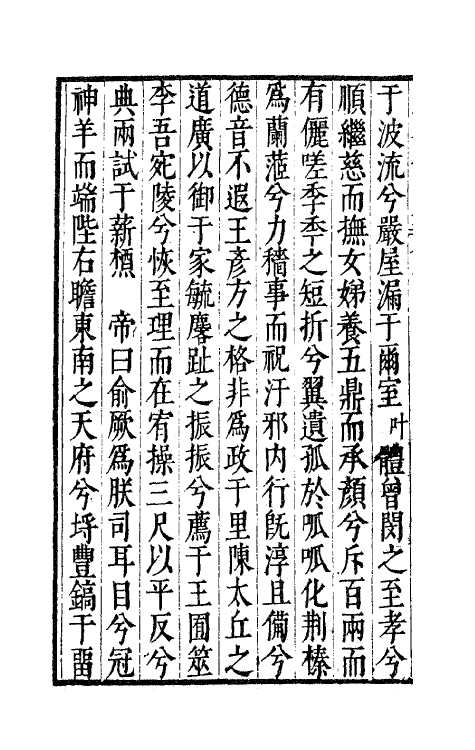 于波流兮嚴屋漏于爾室叶體曾閔之至孝兮
順繼慈而撫女娣養五鼎而承顏兮斥百兩而
有儷嗟季季之短折兮翼遺孤於呱呱化荆榛
爲蘭茝兮力穡事而祝汙邪内行旣淳且備兮
德音不遐王彥方之格非爲政于里陳太丘之
道廣以御于家毓麐趾之振振兮薦于王國筮
李吾宛陵兮恢至理而在宥操三尺以平反兮
典兩試于薪槱　帝曰俞厥爲朕司耳目兮冠
神羊而端陛右瞻東南之天府兮埒豐鎬于畱